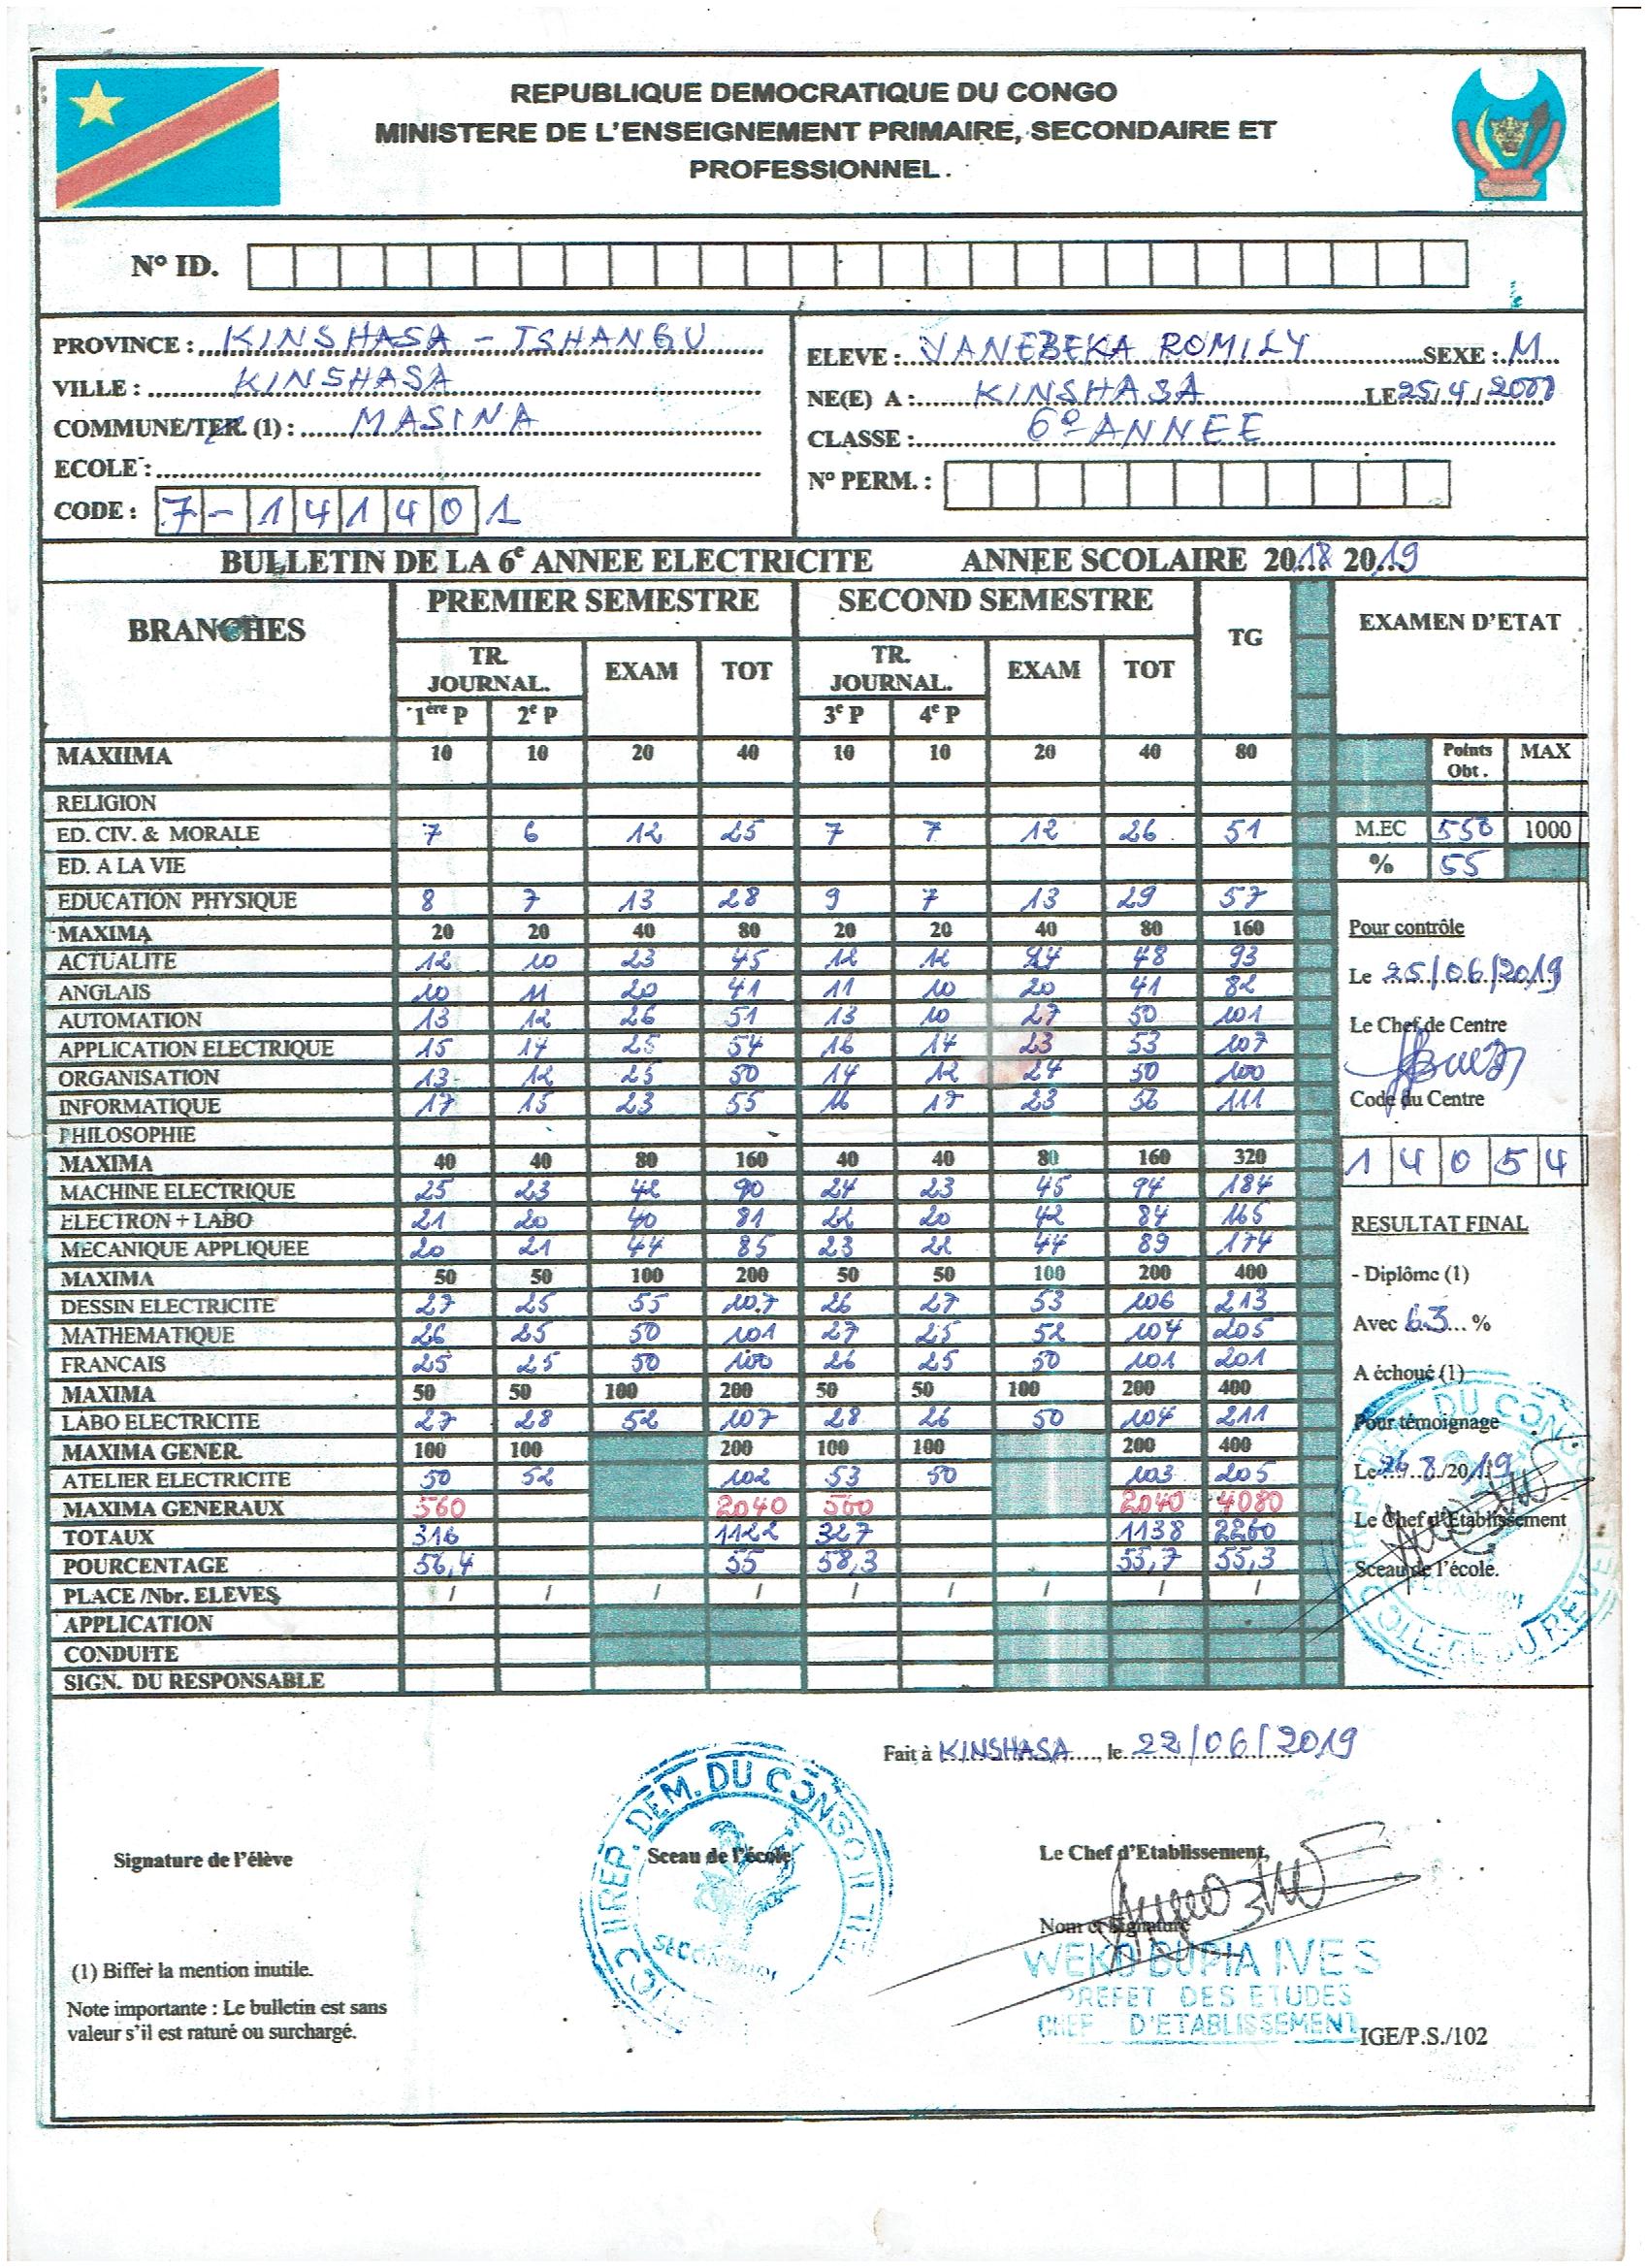 REPUBLIQUE DEMOCRATIQUE DU CONGO
MINISTERE DE L'ENSEIGNEMENT PRIMAIRE, SECONDAIRE ET
PROFESSIONNEL.
N° ID.
PROVINCE : KINSHASA - TSHANGU
VILLE : KINSHASA
COMMUNE/TER. (1) : MASINA
ECOLE :
CODE : 7-141401
ELEVE : VANEBEKA ROMILY SEXE : M
NE(E) A : KINSHASA LE 25/4/2000
CLASSE : 6e ANNEE
N° PERM. :
BULLETIN DE LA 6e ANNEE ELECTRICITE ANNEE SCOLAIRE 2018 2019
BRANCHES PREMIER SEMESTRE SECOND SEMESTRE TG EXAMEN D'ETAT
TR. JOURNAL. EXAM TOT TR. JOURNAL. EXAM TOT
1ère P 2e P 3e P 4e P
MAXIIMA 10 10 20 40 10 10 20 40 80 Points Obt. MAX
RELIGION
ED. CIV. & MORALE 7 6 12 25 7 7 12 26 51 M.EC 550 1000
ED. A LA VIE % 55
EDUCATION PHYSIQUE 8 7 13 28 9 7 13 29 57
MAXIMA 20 20 40 80 20 20 40 80 160
ACTUALITE 12 10 23 45 12 12 24 48 93
ANGLAIS 10 11 20 41 11 10 20 41 82
AUTOMATION 13 12 26 51 13 10 27 50 101
APPLICATION ELECTRIQUE 15 14 25 54 16 14 23 53 107
ORGANISATION 13 12 25 50 14 12 24 50 100
INFORMATIQUE 17 15 23 55 16 17 23 56 111
PHILOSOPHIE
MAXIMA 40 40 80 160 40 40 80 160 320
MACHINE ELECTRIQUE 25 23 42 90 24 23 45 94 184
ELECTRON + LABO 21 20 40 81 22 20 42 84 165
MECANIQUE APPLIQUEE 20 21 44 85 23 22 44 89 174
MAXIMA 50 50 100 200 50 50 100 200 400
DESSIN ELECTRICITE 27 25 55 107 26 27 53 106 213
MATHEMATIQUE 26 25 50 101 27 25 52 104 205
FRANCAIS 25 25 50 100 26 25 50 101 201
MAXIMA 50 50 100 200 50 50 100 200 400
LABO ELECTRICITE 27 28 52 107 28 26 50 104 211
MAXIMA GENER. 100 100 200 100 100 200 400
ATELIER ELECTRICITE 50 52 102 53 50 103 205
MAXIMA GENERAUX 560 2040 560 2040 4080
TOTAUX 316 1122 327 1138 2260
POURCENTAGE 56,4 55 58,3 55,7 55,3
PLACE /Nbr. ELEVES / / / / / / / / /
APPLICATION
CONDUITE
SIGN. DU RESPONSABLE
Pour contrôle
Le 25/06/2019
Le Chef de Centre
Code du Centre
14054
RESULTAT FINAL
- Diplôme (1)
Avec 63 %
A échoué (1)
Pour témoignage
Le /8/2019
Le Chef d'Etablissement
Sceau de l'école.
REP. DEM. DU CONGO
Fait à KINSHASA, le 22/06/2019
Signature de l'élève
Sceau de l'école
REP. DEM. DU CONGO
SECONDAIRE
Le Chef d'Etablissement,
Nom et Signature
WEKO BUPIA IVES
PREFET DES ETUDES
CHEF D'ETABLISSEMENT
(1) Biffer la mention inutile.
Note importante : Le bulletin est sans
valeur s'il est raturé ou surchargé.
IGE/P.S./102